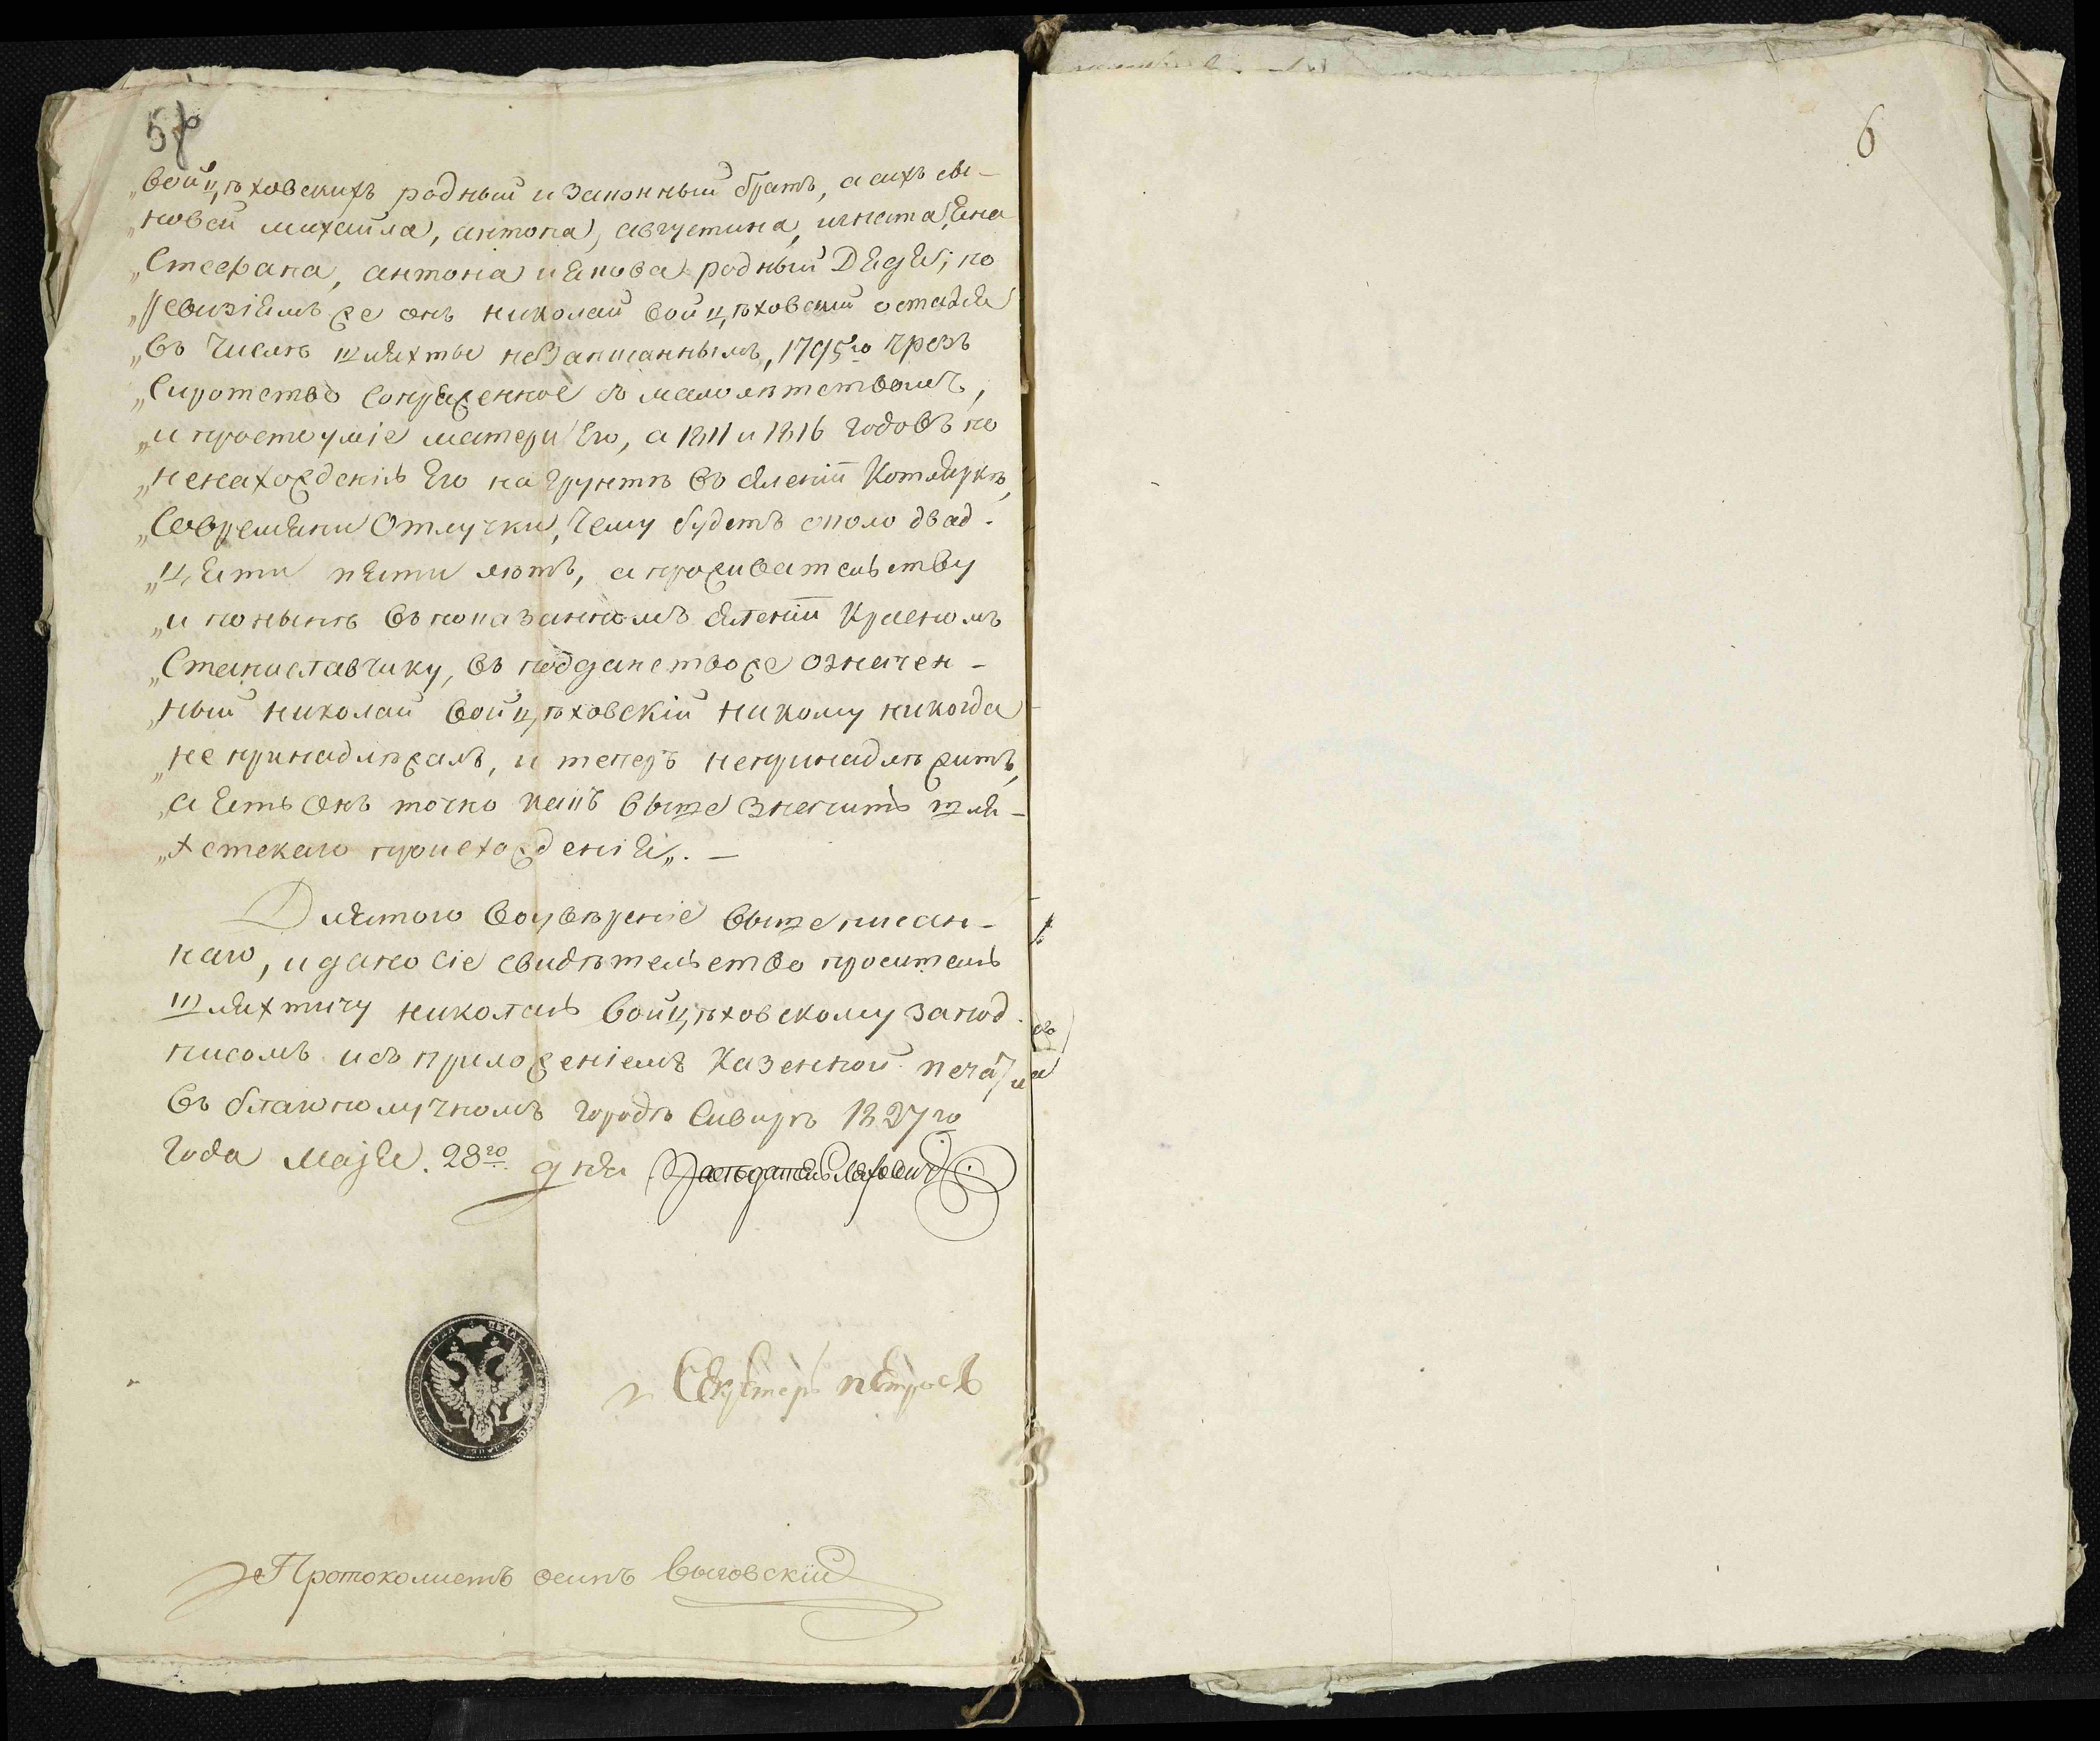 6
„войцѣховскихъ родный и законный братъ, а ихъ сы-
„новей михайла, антона, августина, игната, яна
„Стефана, антона и якова родный дядя; по
„ревизіямъ же онъ николай войцѣховскій остался
„въ числѣ шляхты незаписаннымъ, 1795го чрезъ
„Сиротство сопряженное съ малолѣтствомъ,
„и простоуміе матери Его, а 1811 и 1816 годовъ по
„ненахожденію Его на грунтѣ въ селеніи Котляркѣ,
„Современи Отлучки, чему будетъ около двад-
„цяти пяти лѣтъ, а проживательству
„и понынѣ въ показанномъ селеніи Красномъ
„Станиславчику, въ подданствоже означен-
„ный николай войцѣховскій никому никогда
„не принадлѣжалъ, и теперъ непринадлѣжитъ,
„а есть онъ точно какъ выше значитъ шля-
„хетскаго происхожденія„. —
Длятого воувѣреніе вышеписан-
наго, и дано сіе свидѣтельство просителю
шляхтичу николаю войцѣховскому запод-
писомъ исъ приложеніемъ Казенной печати
въ благополучномъ городѣ 1827го
года Маія 28го дня
Секретарь
Протоколистъ осипъ Выговскій